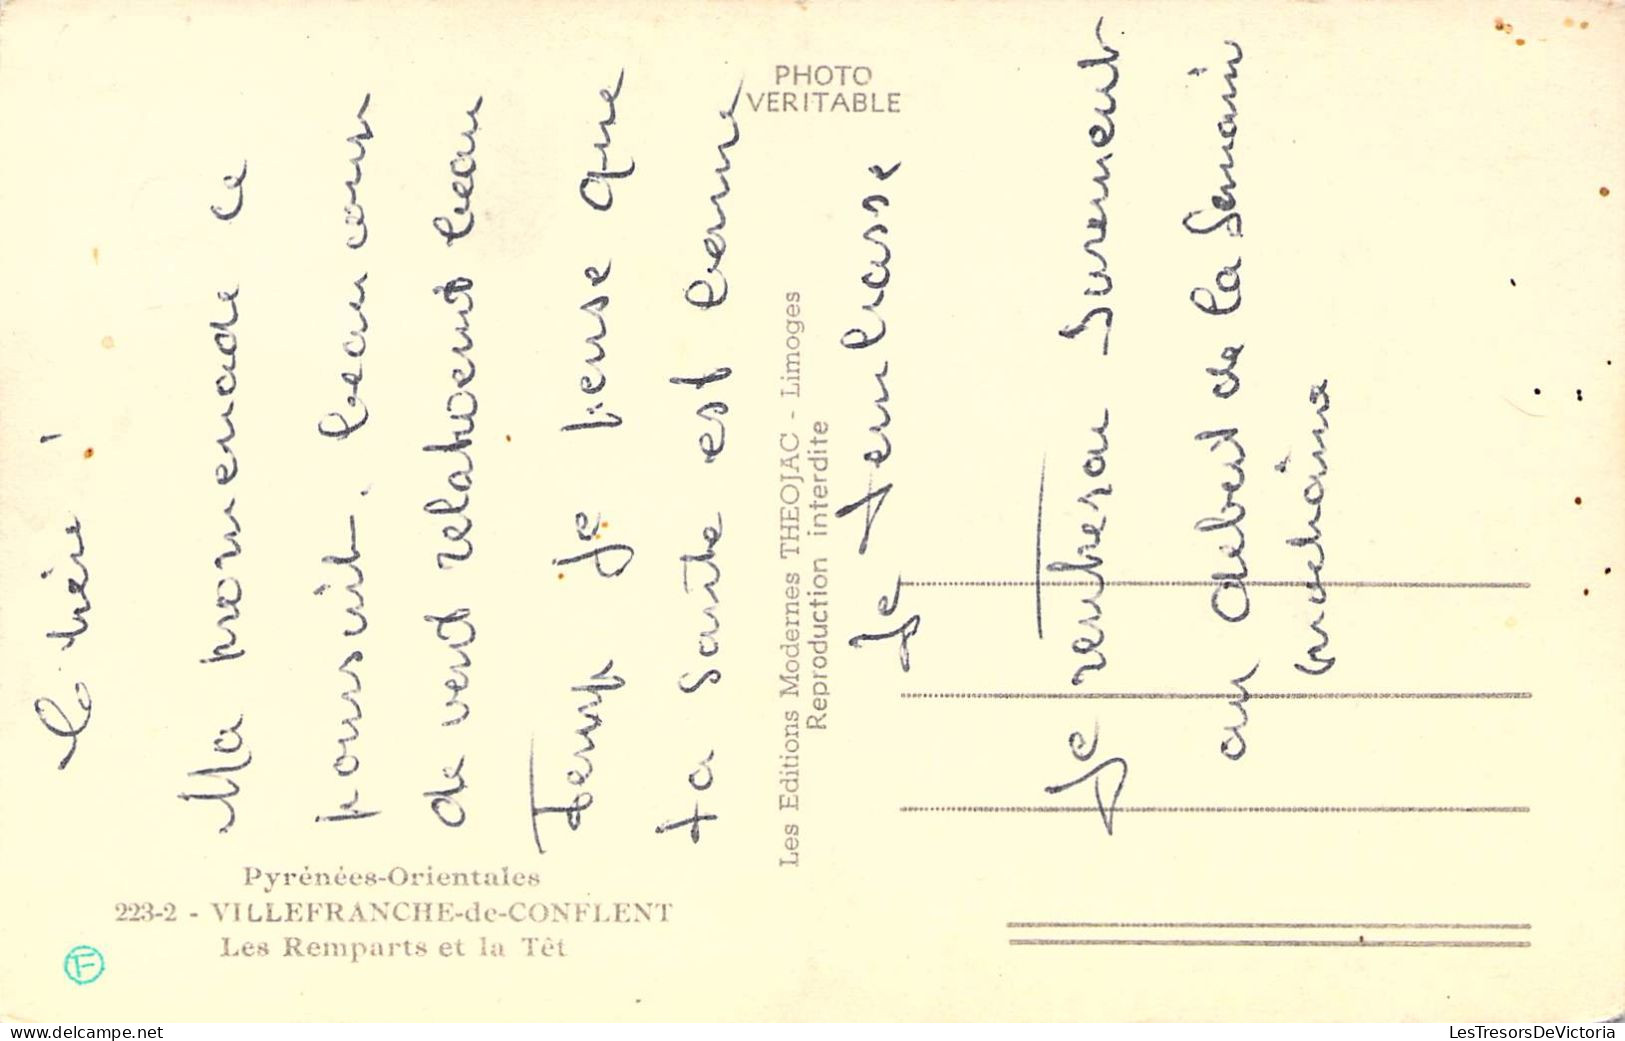 Ma promenade ce
poursuit. beaucoup
de vent relativement beau
Temp je pense que
ta santé est bonne
Je t'embrasse
Je rentrerai surement
au debut de la semain
prochaine
PHOTO
VERITABLE
Les Editions Modernes THEOJAC - Limoges
Reproduction interdite
Pyrénées-Orientales
223-2 - VILLEFRANCHE-de-CONFLENT
Les Remparts et la Têt
F
www.delcampe.net
LesTresorsDeVictoria